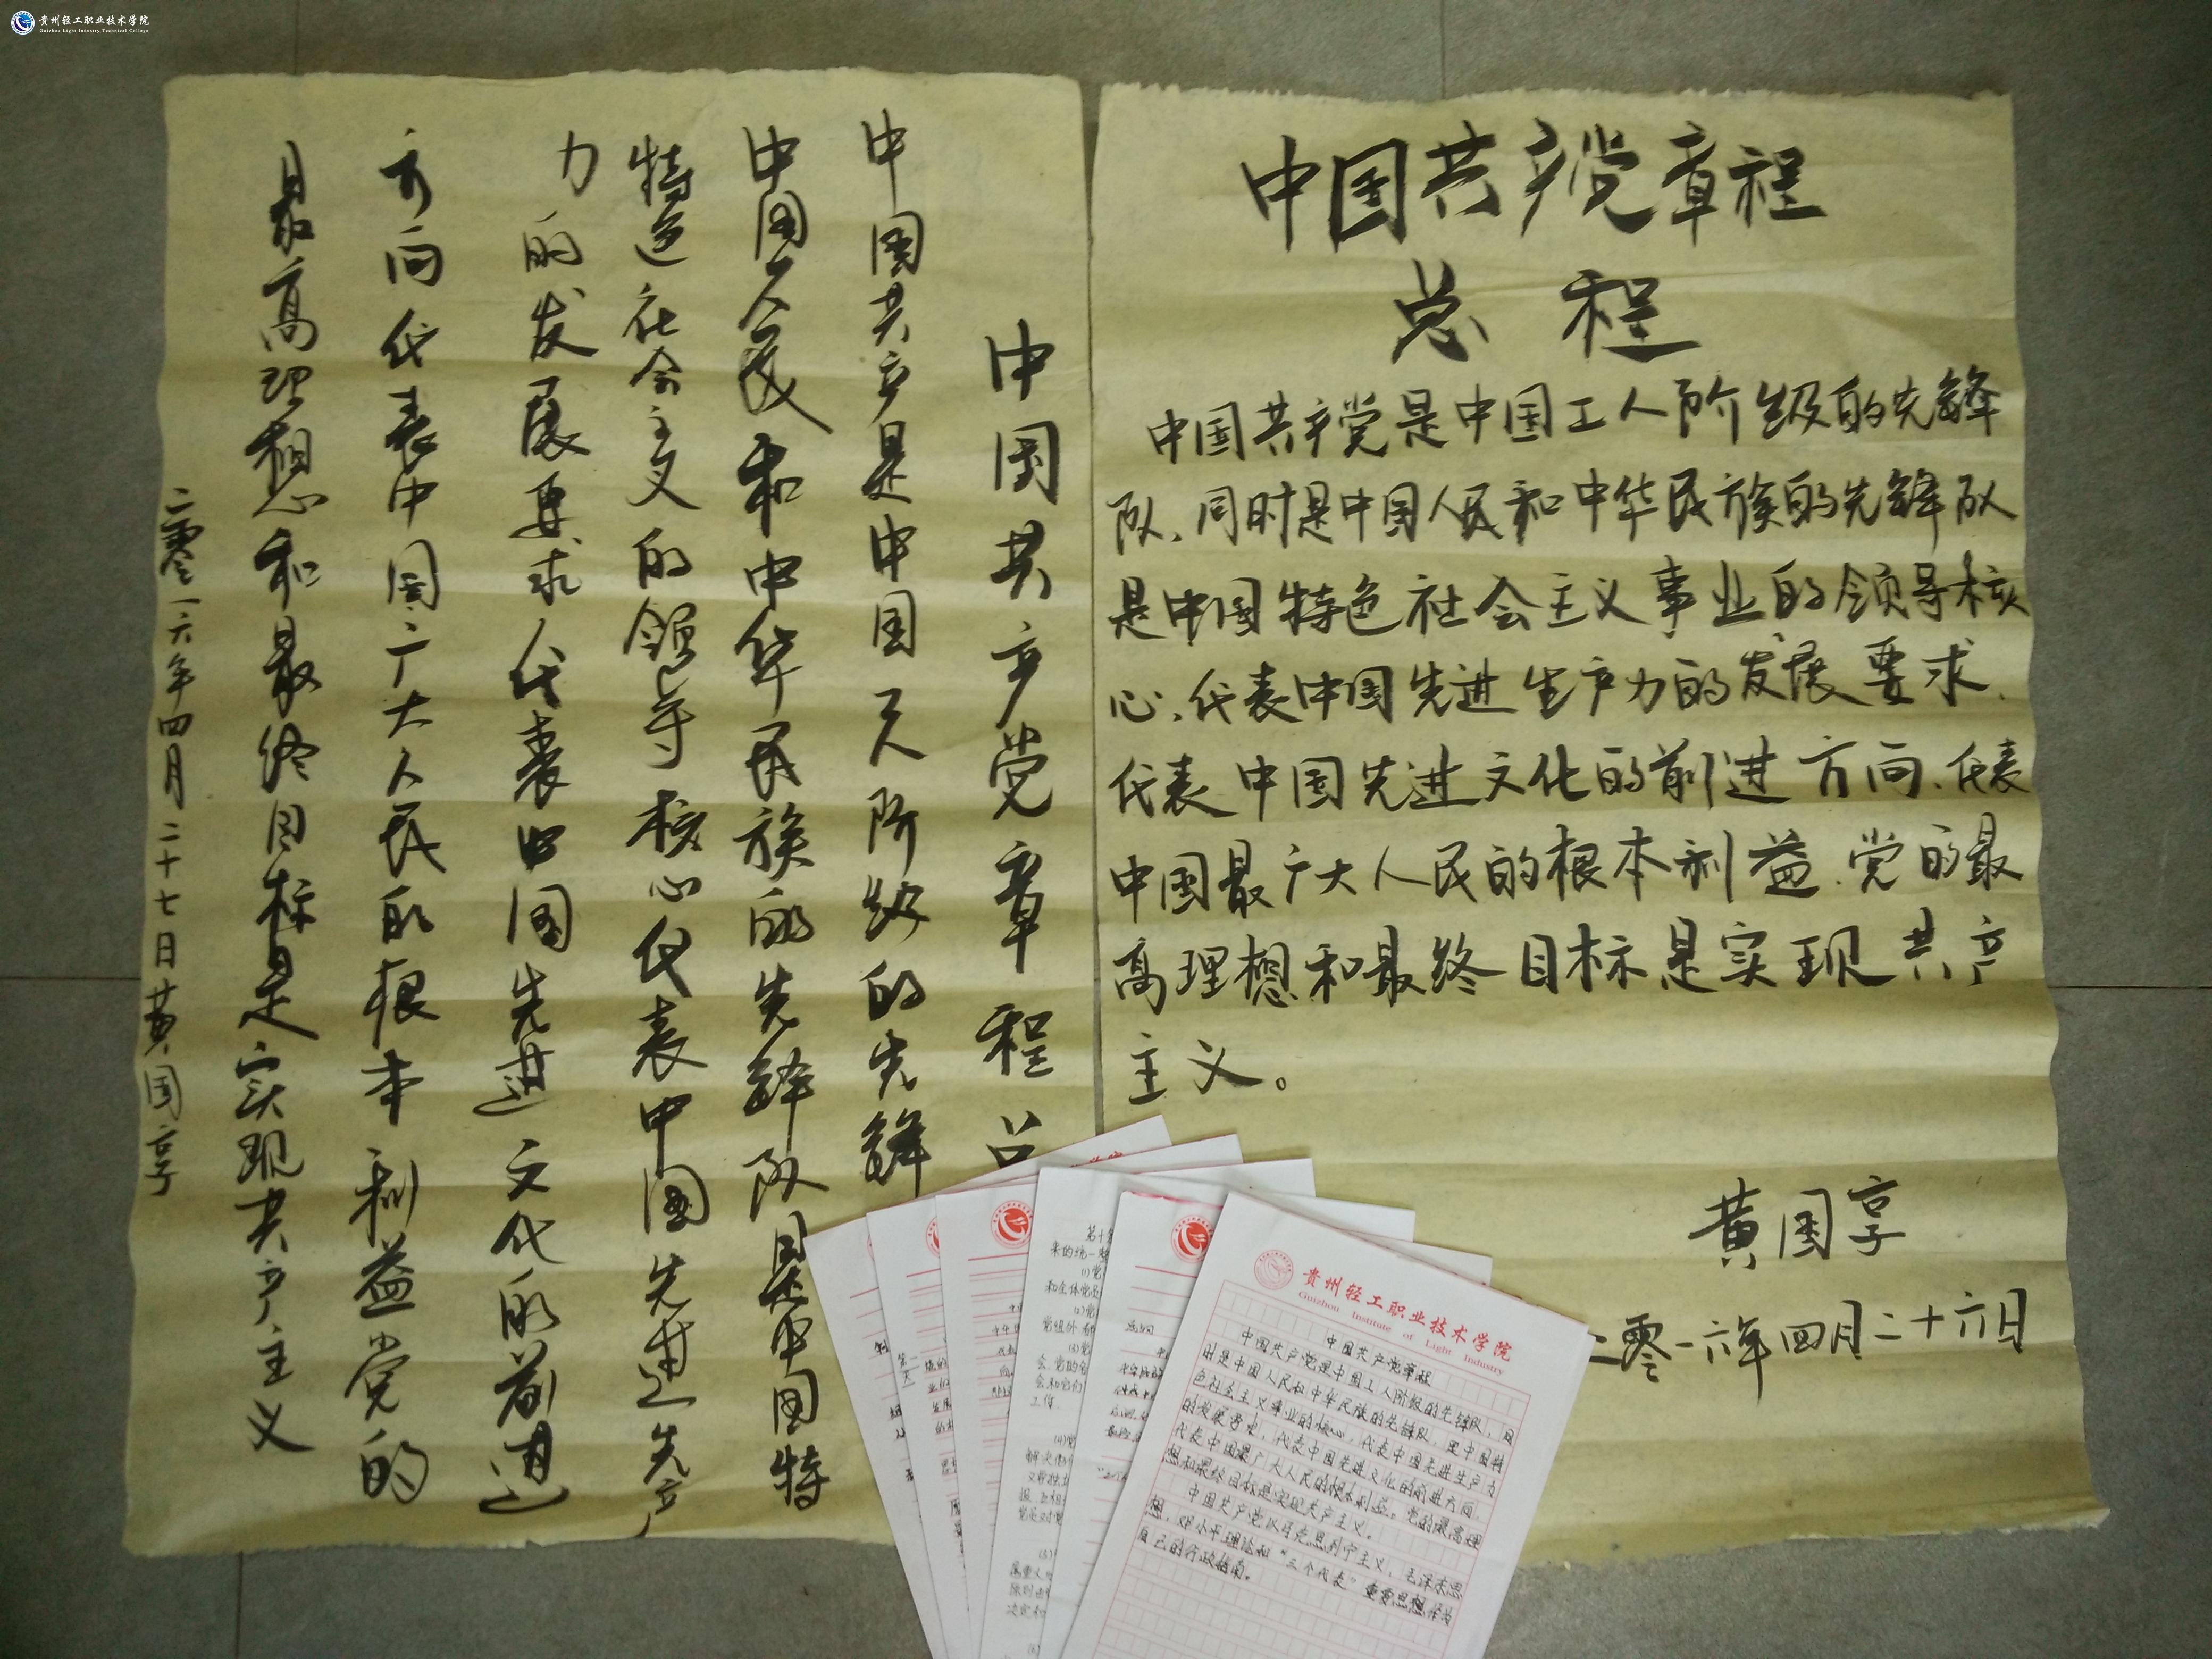 贵州轻工职业技术学院
Guizhou Light Industry Technical College
中国共产党章程
总程
中国共产党是中国工人阶级的先锋
队、同时是中国人民和中华民族的先锋队
是中国特色社会主义事业的领导核
心、代表中国先进生产力的发展要求、
代表中国先进文化的前进方向、代表
中国最广大人民的根本利益、党的最
高理想和最终目标是实现共产
主义。
黄国享
二零一六年四月二十六日
中国共产党章程
中国共产是中国工人阶级的先锋
中国人民和中华民族的先锋队是中国特
特色社会主义的领导核心代表中国先进生产
力的发展要求代表中国先进文化的前进
方向代表中国广大人民的根本利益党的
最高理想和最终目标是实现共产主义
二零一六年四月二十七日黄国享
贵州轻工职业技术学院
Guizhou Institute of Light Industry
中国共产党章程
中国共产党是中国工人阶级的先锋队，同
时是中国人民和中华民族的先锋队，是中国特
色社会主义事业的核心，代表中国先进生产力
的发展要求，代表中国先进文化的前进方向，
代表中国最广大人民的根本利益。党的最高理
想和最终目标是实现共产主义。
中国共产党以马克思列宁主义，毛泽东思
想，邓小平理论和“三个代表”重要思想作为
自己的行政指南。